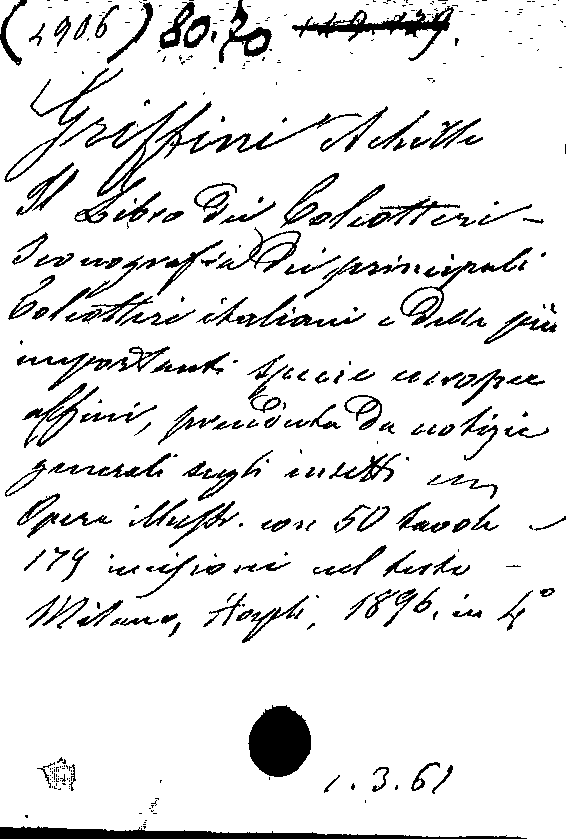 (2906) 80.70 149.129.
Griffini Achille
Il Libro dei Coleotteri -
Iconografia dei principali
Coleotteri italiani e delle più
importanti specie europee
affini, preceduta da notizie
generali sugli insetti
Opera illustr. con 50 tavole
179 incisioni nel testo -
Milano, Hoepli, 1896, in 4°
1.3.61